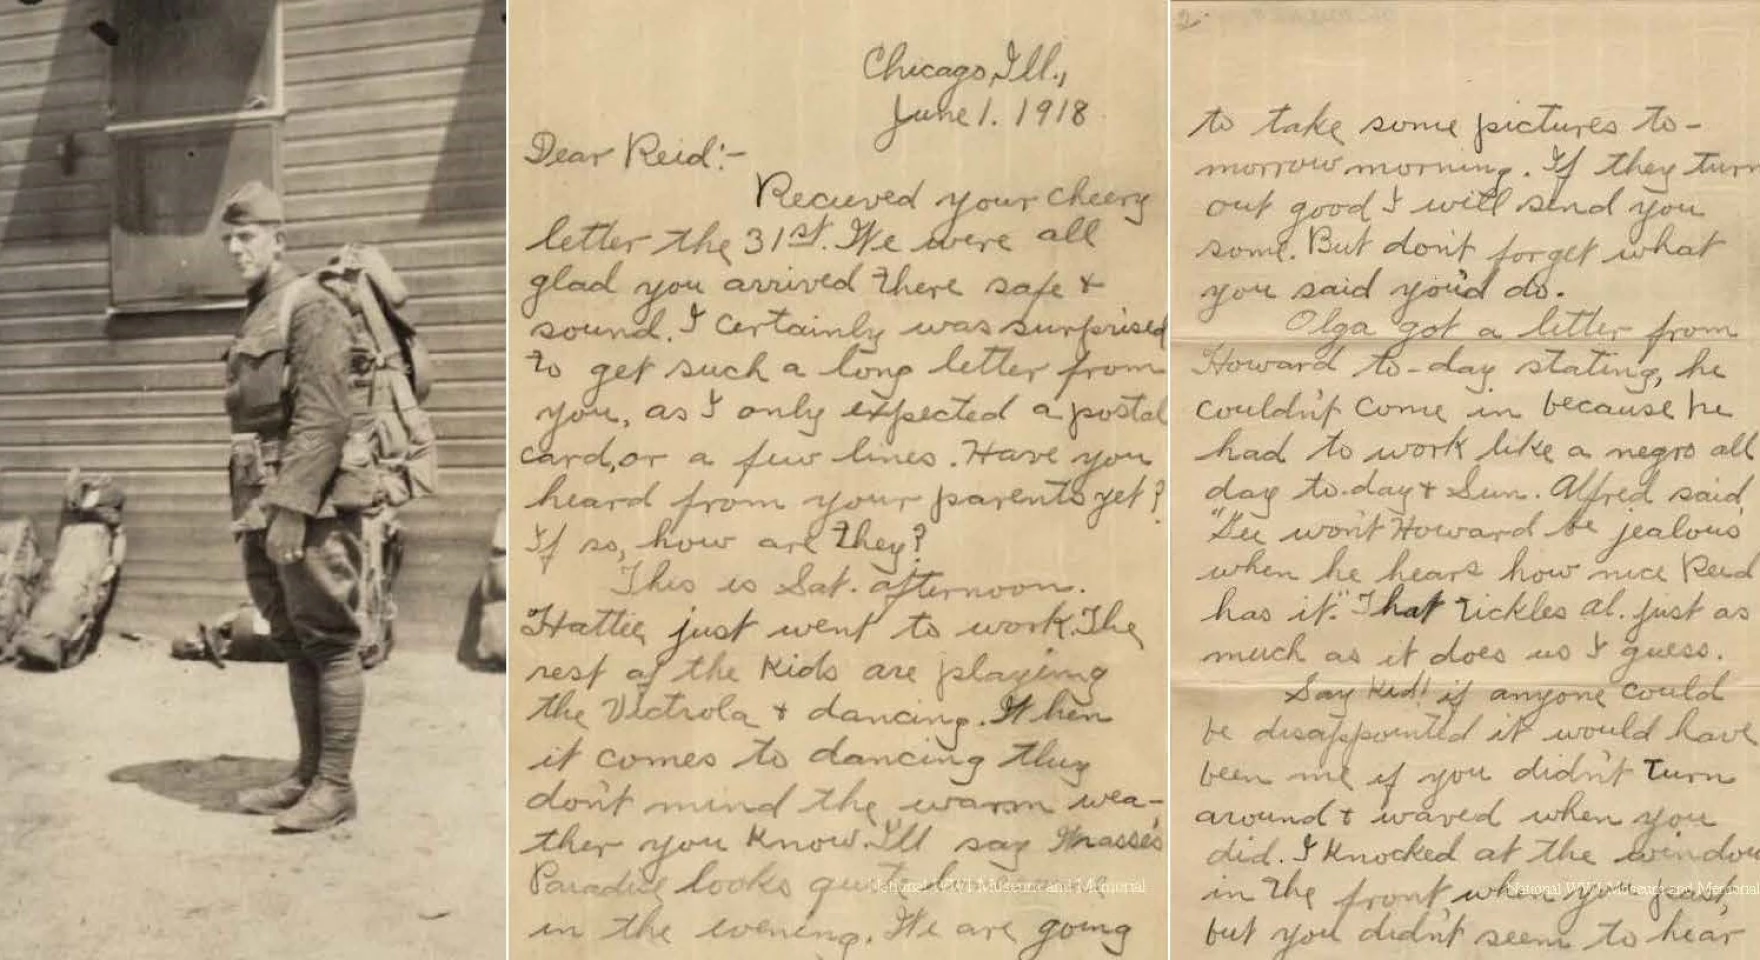 Chicago, Ill.,
June 1. 1918
Dear Reid:-
Recieved your cheery
letter the 31st. We were all
glad you arrived there safe &
sound. I certainly was surprised
to get such a long letter from
you, as I only expected a postal
card, or a few lines. Have you
heard from your parents yet?
If so, how are they?
This is Sat. afternoon.
Hattie, just went to work. The
rest of the kids are playing
the Victrola & dancing. When
it comes to dancing they
don't mind the warm wea-
ther you know. I'll say
Paradise looks quite
in the evening. We are going
National WWI Museum and Memorial
2-
to take some pictures to-
morrow morning. If they turn
out good I will send you
some. But don't forget what
you said you'd do.
Olga got a letter from
Howard to-day stating, he
couldn't come in because he
had to work like a negro all
day to-day & Sun. Alfred said,
"Gee won't Howard be jealous
when he hears how nice Reid
has it." That tickles Al. just as
much as it does us I guess.
Say Kid! if anyone could
be disappointed it would have
been me if you didn't turn
around & waved when you
did. I knocked at the window
in the front when you past,
but you didn't seem to hear
National WWI Museum and Memorial